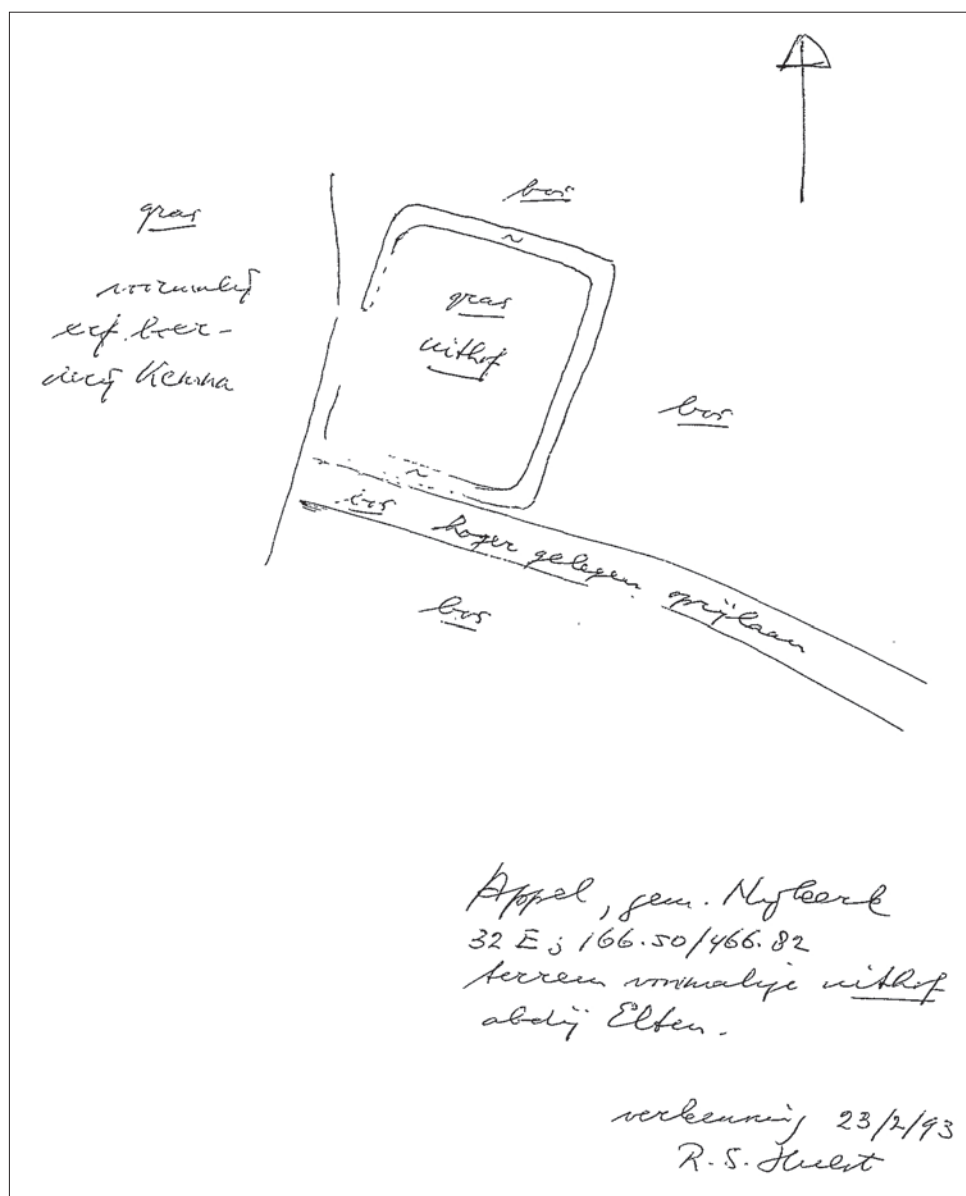 bos
gras
voormalig
erf boer-
derij Kenna
gras
uithof
bos
bos
hoger gelegen oprijlaan
bos
Appel, gem. Nijkerk
32 E; 166.50/466.82
terrein voormalige uithof
abdij Elten.
verkenning 23/2/93
R.S. Hulst